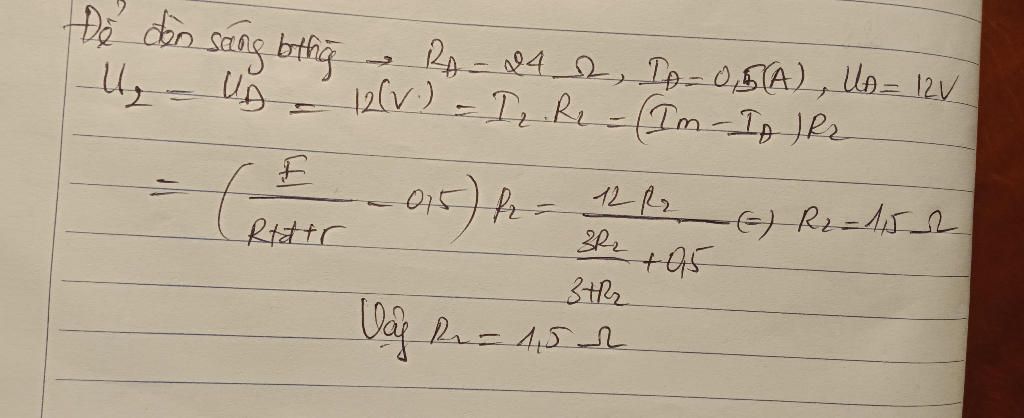 Để đèn sáng bthg → R_Đ = 24 Ω, I_Đ = 0,5(A), U_Đ = 12V
U₂ = U_Đ = 12(V) = I₂ . R₂ = (Im - I_Đ) R₂
= (E / (Rtđ + r) - 0,5) R₂ = 12 R₂ / (3R₂ / (3 + R₂) + 0,5) (=) R₂ = 1,5 Ω
Vậy R₂ = 1,5 Ω